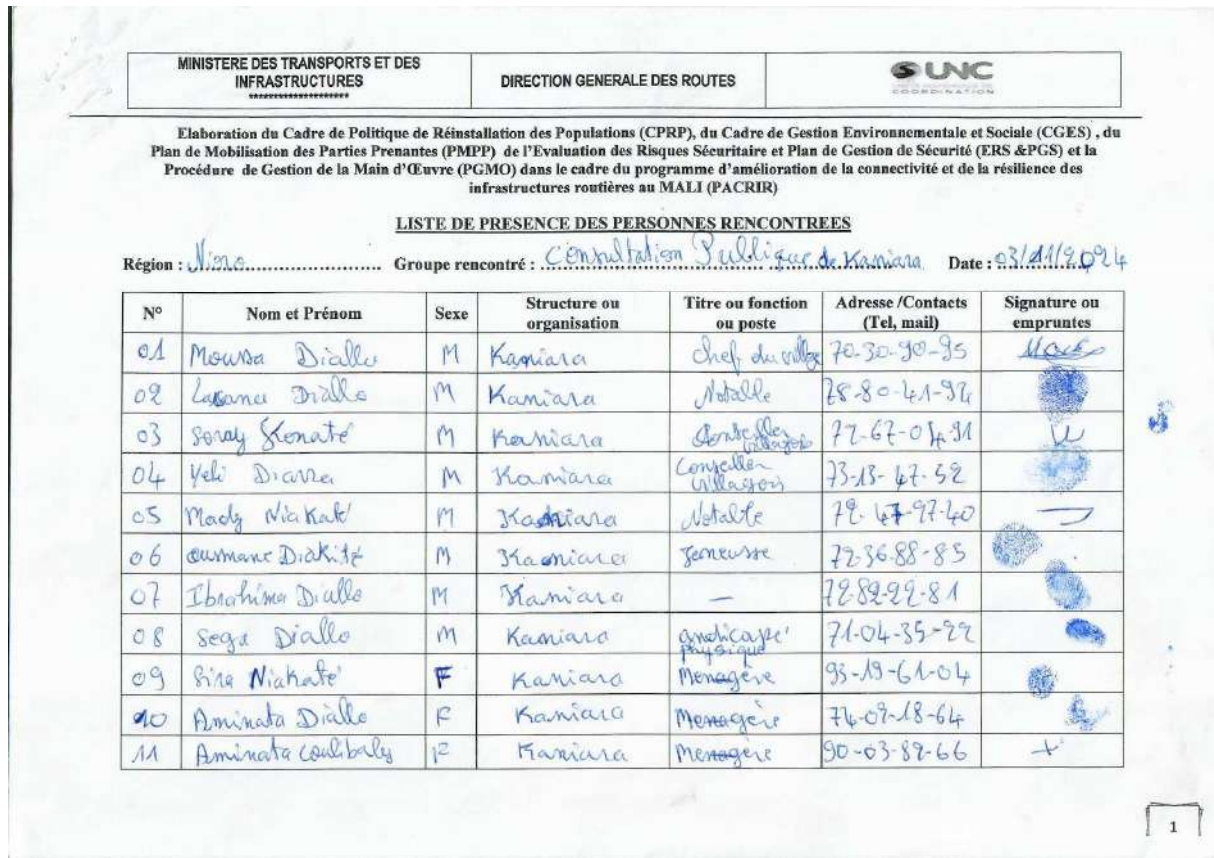 MINISTERE DES TRANSPORTS ET DES
INFRASTRUCTURES
********************
DIRECTION GENERALE DES ROUTES
UNC
COORDINATION
Elaboration du Cadre de Politique de Réinstallation des Populations (CPRP), du Cadre de Gestion Environnementale et Sociale (CGES) , du
Plan de Mobilisation des Parties Prenantes (PMPP) de l'Evaluation des Risques Sécuritaire et Plan de Gestion de Sécurité (ERS &PGS) et la
Procédure de Gestion de la Main d'Œuvre (PGMO) dans le cadre du programme d'amélioration de la connectivité et de la résilience des
infrastructures routières au MALI (PACRIR)
LISTE DE PRESENCE DES PERSONNES RENCONTREES
Région : Nioro Groupe rencontré : Consultation Publique de Kaniara Date : 03/11/2024
N° Nom et Prénom Sexe Structure ou organisation Titre ou fonction ou poste Adresse /Contacts (Tel, mail) Signature ou empruntes
01 Moussa Diallo M Kaniara chef du village 70-30-90-95
02 Lassana Diallo M Kaniara Notable 78-80-41-94
03 Soray Konaté M Kaniara Conseiller villageois 72-67-04-91
04 Yeli Diarra M Kaniara Conseiller villageois 73-13-47-52
05 Mady Niakaté M Kaniara Notable 79-47-97-40
06 Ousmane Diakité M Kaniara Jeneusse 72-36-88-85
07 Ibrahima Diallo M Kaniara — 72-82-22-81
08 Sega Diallo M Kaniara andicapé physique 71-04-35-22
09 Sira Niakaté F Kaniara Menagère 93-19-61-04
10 Aminata Diallo F Kaniara Menagère 74-09-18-64
11 Aminata Coulibaly F Kaniara Menagère 90-03-82-66 +
1